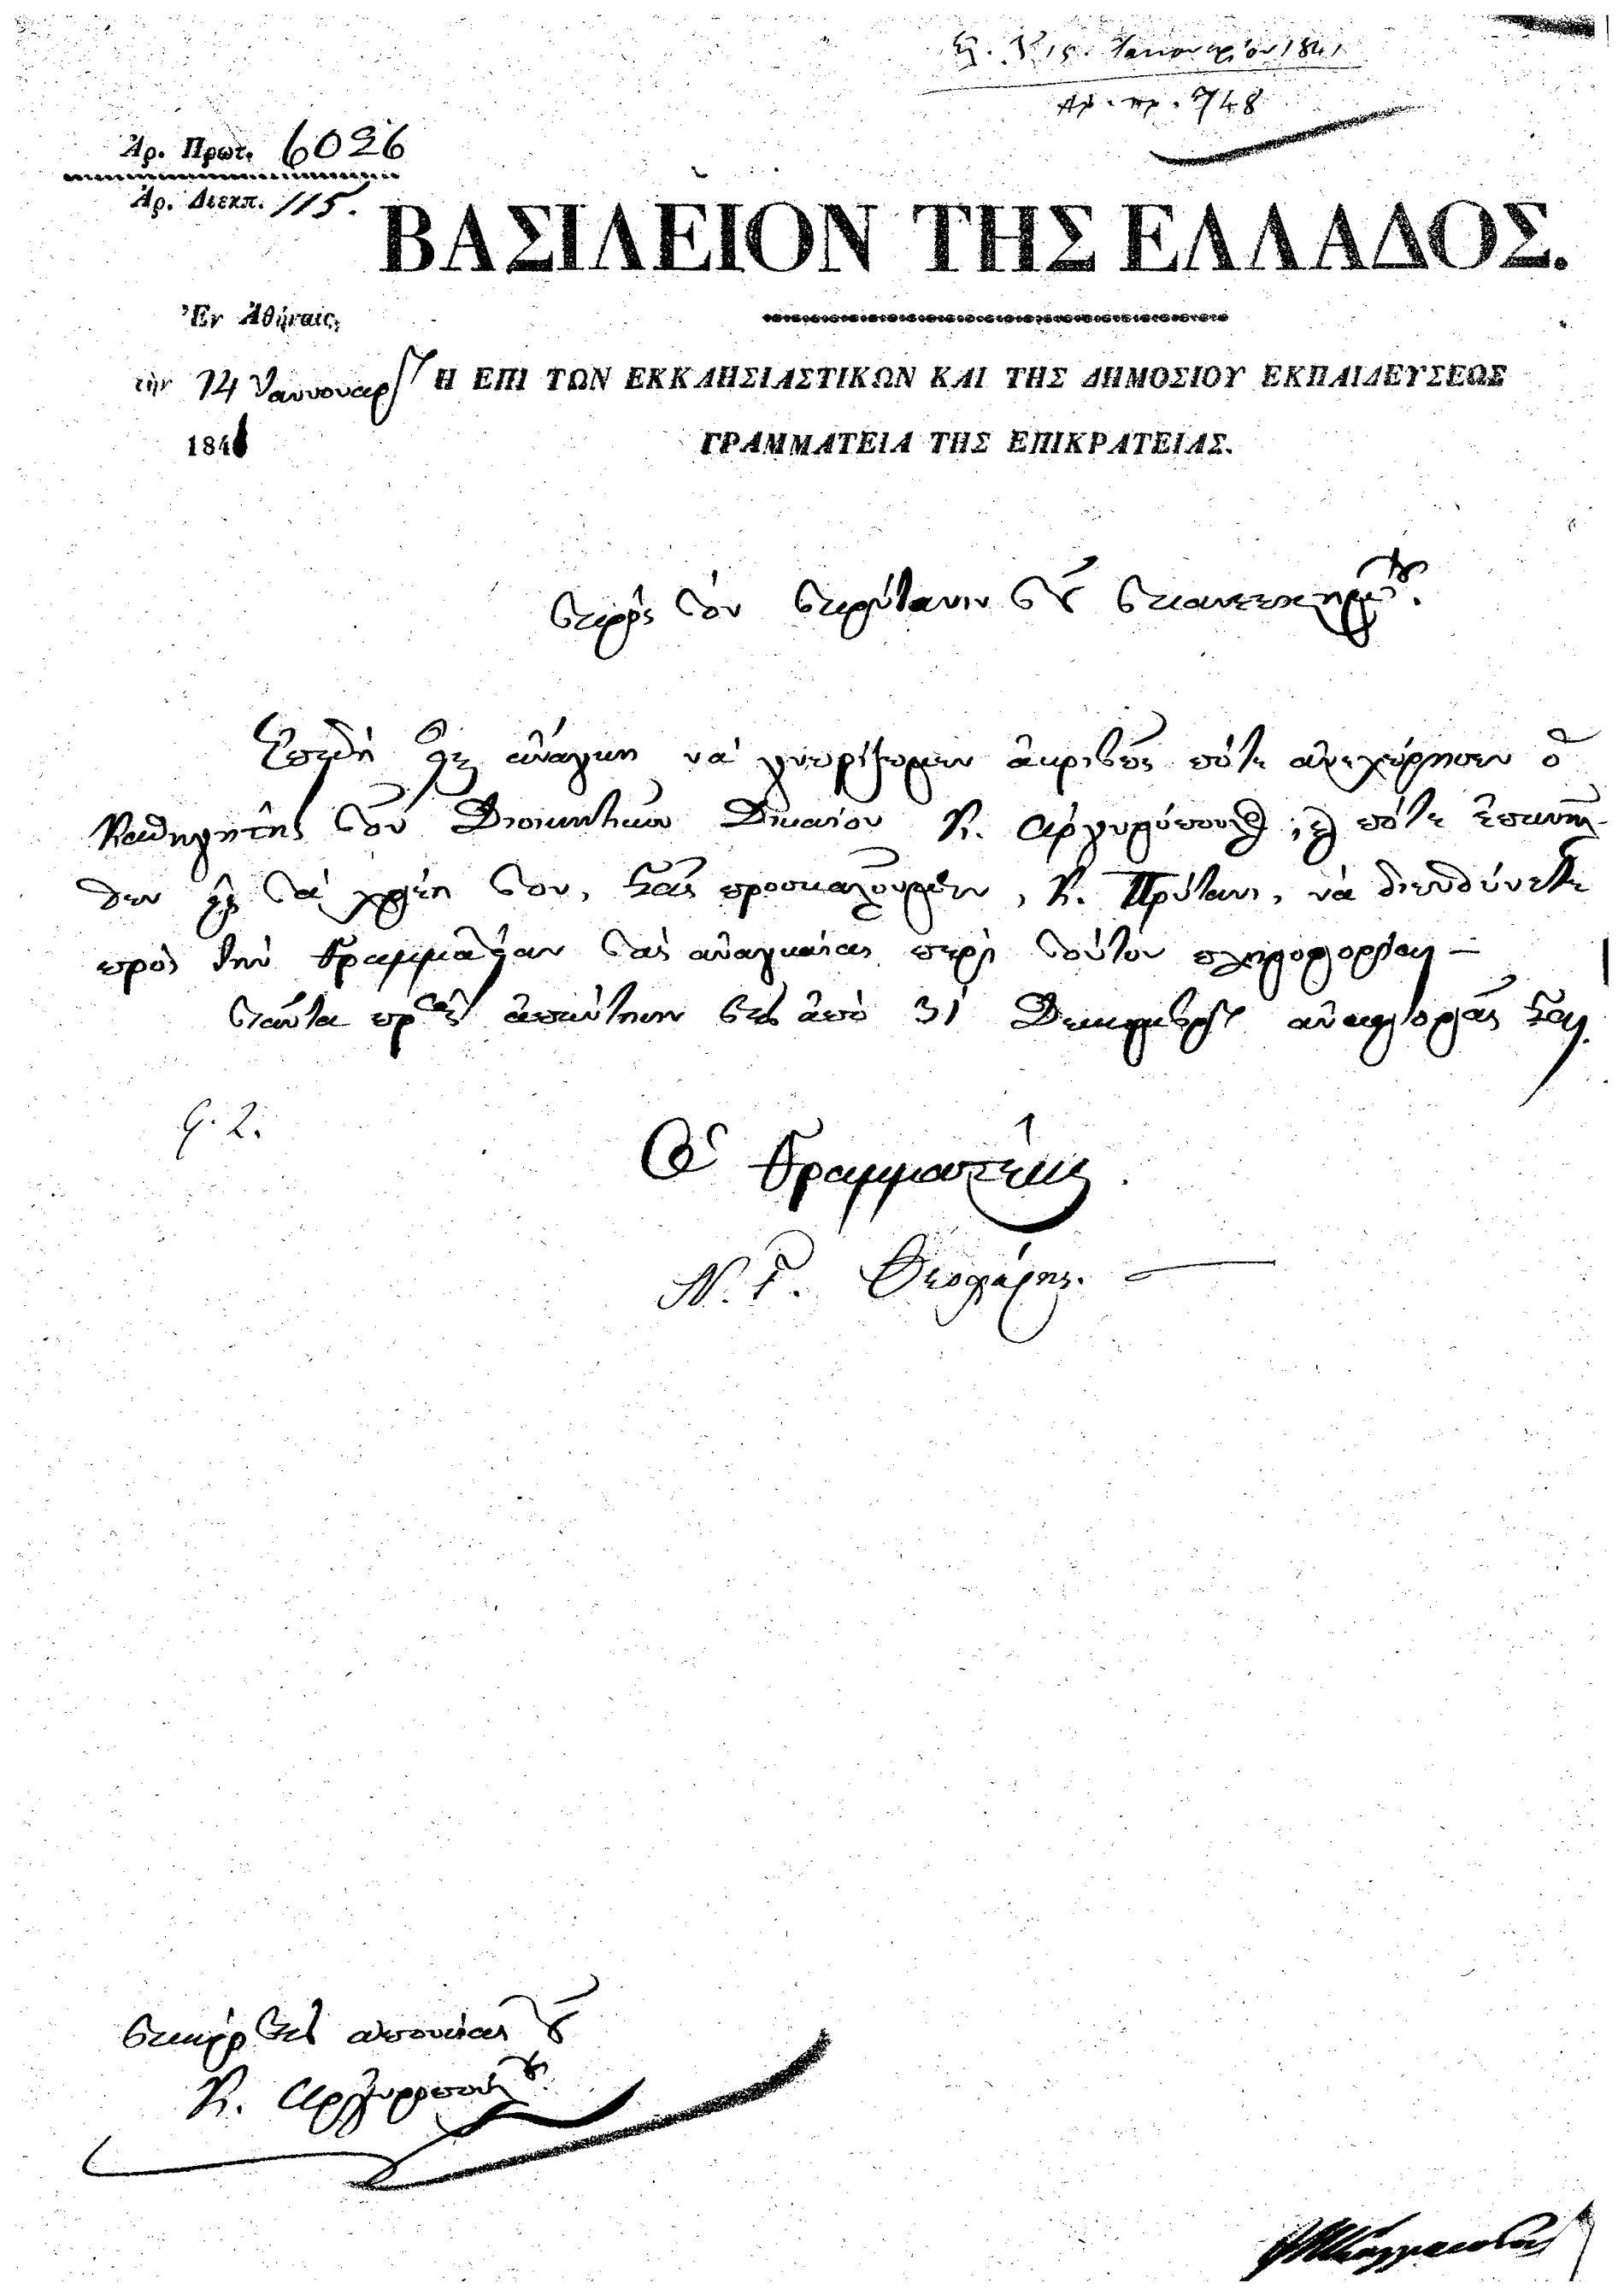 15 Ἰανουαρίου 1841
Ἀρ. πρ. 748
Ἀρ. Πρωτ. 6026
Ἀρ. Διεκπ. 115.
ΒΑΣΙΛΕΙΟΝ ΤΗΣ ΕΛΛΑΔΟΣ.
Ἐν Ἀθήναις,
τὴν 14 Ἰαννουαρ
1841
Η ΕΠΙ ΤΩΝ ΕΚΚΛΗΣΙΑΣΤΙΚΩΝ ΚΑΙ ΤΗΣ ΔΗΜΟΣΙΟΥ ΕΚΠΑΙΔΕΥΣΕΩΣ
ΓΡΑΜΜΑΤΕΙΑ ΤΗΣ ΕΠΙΚΡΑΤΕΙΑΣ.
Πρὸς τὸν Πρύτανιν τοῦ Πανεπιστημίου.
Ἐπειδὴ εἶναι ἀνάγκη νὰ γνωρίζωμεν ἀκριβῶς πότε ἀνεχώρησεν ὁ
Καθηγητὴς τοῦ Διοικητικοῦ Δικαίου Κ. Ἀργυρόπουλος, καὶ πότε ἐπανῆλ-
θεν εἰς τὰ χρέη του, Σᾶς προσκαλοῦμεν, Κ. Πρύτανι, νὰ διευθύνετε
πρὸς τὴν Γραμματείαν τὰς ἀναγκαίας περὶ τούτου πληροφορίας —
Ταῦτα πρὸς ἀπάντησιν τῆς ἀπὸ 31 Δεκεμβρίου ἀναφορᾶς Σας.
Ὁ Γραμματεὺς
Ν. Γ. Θεοχάρης.
περὶ τῆς ἀπουσίας τοῦ
Κ. Ἀργυροπούλου.